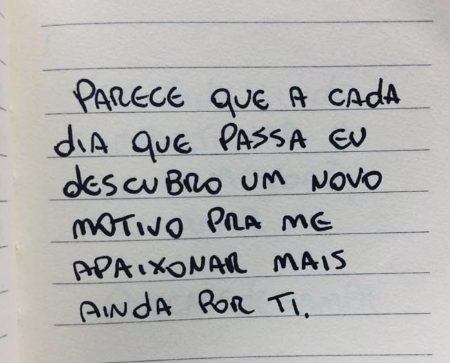 PARECE QUE A CADA
DIA QUE PASSA EU
DESCUBRO UM NOVO
MOTIVO PRA ME
APAIXONAR MAIS
AINDA POR TI.